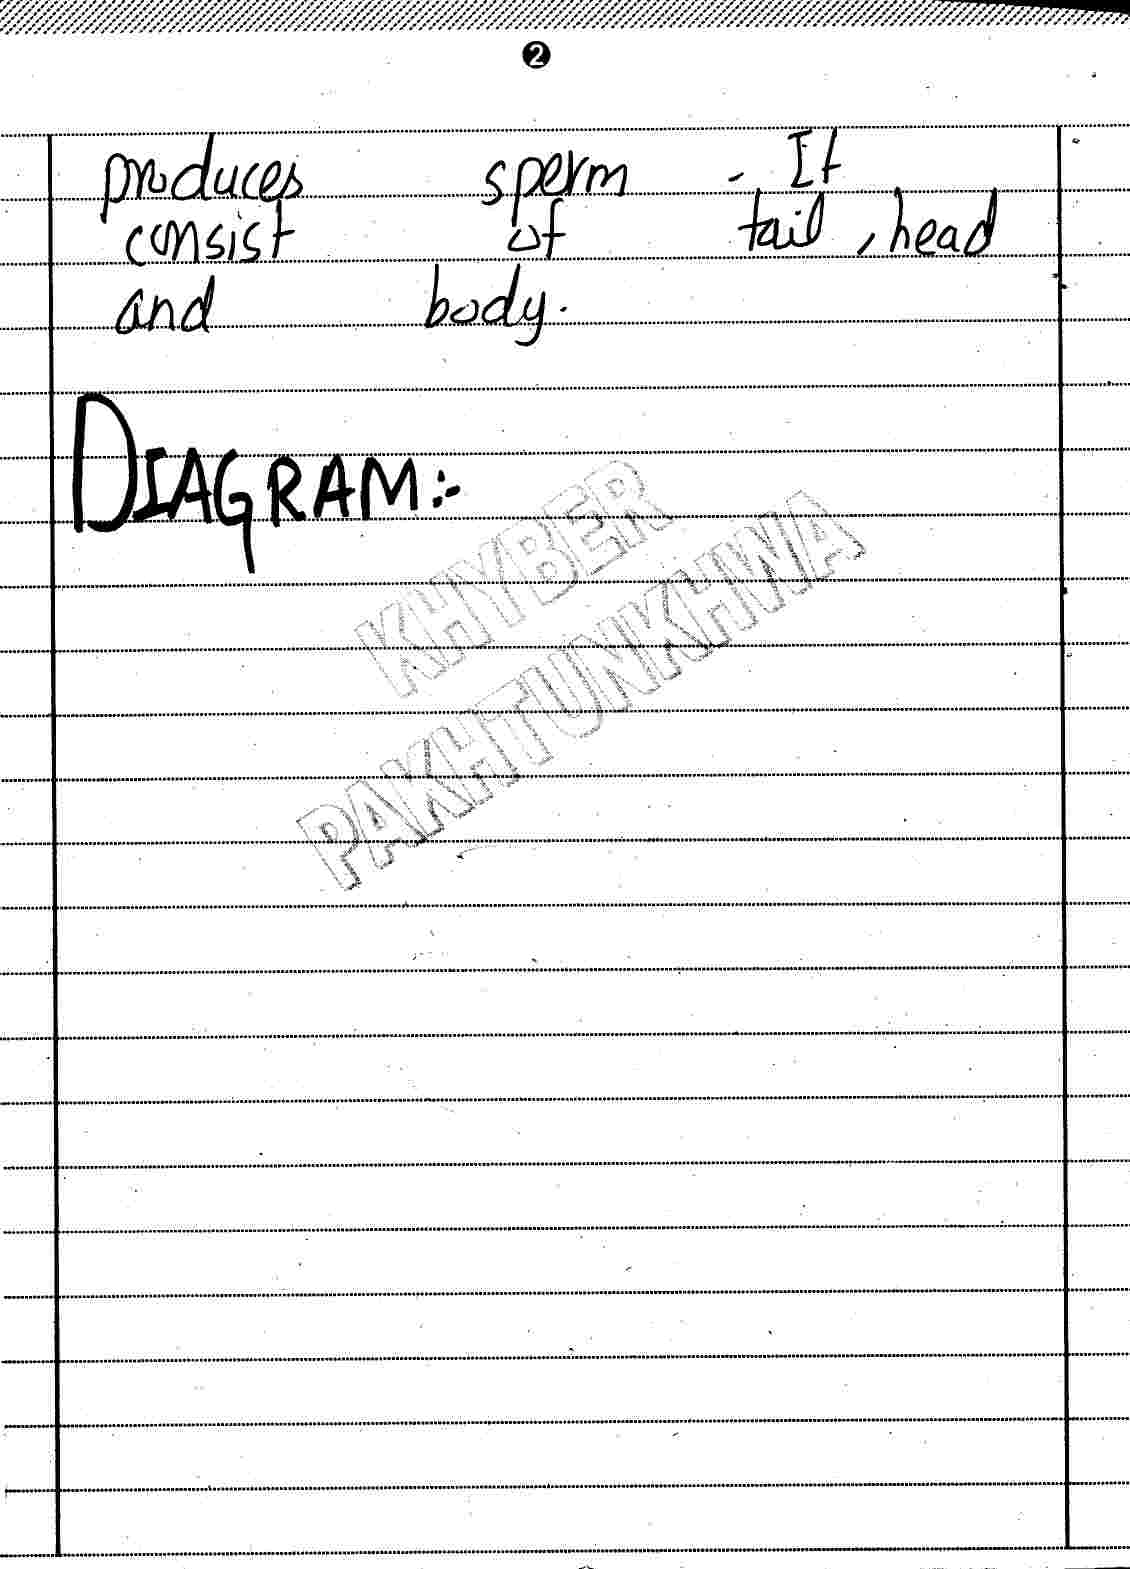 2
produces sperm . It
consist of tail , head
and body.
DIAGRAM:-
KHYBER
PAKHTUNKHWA